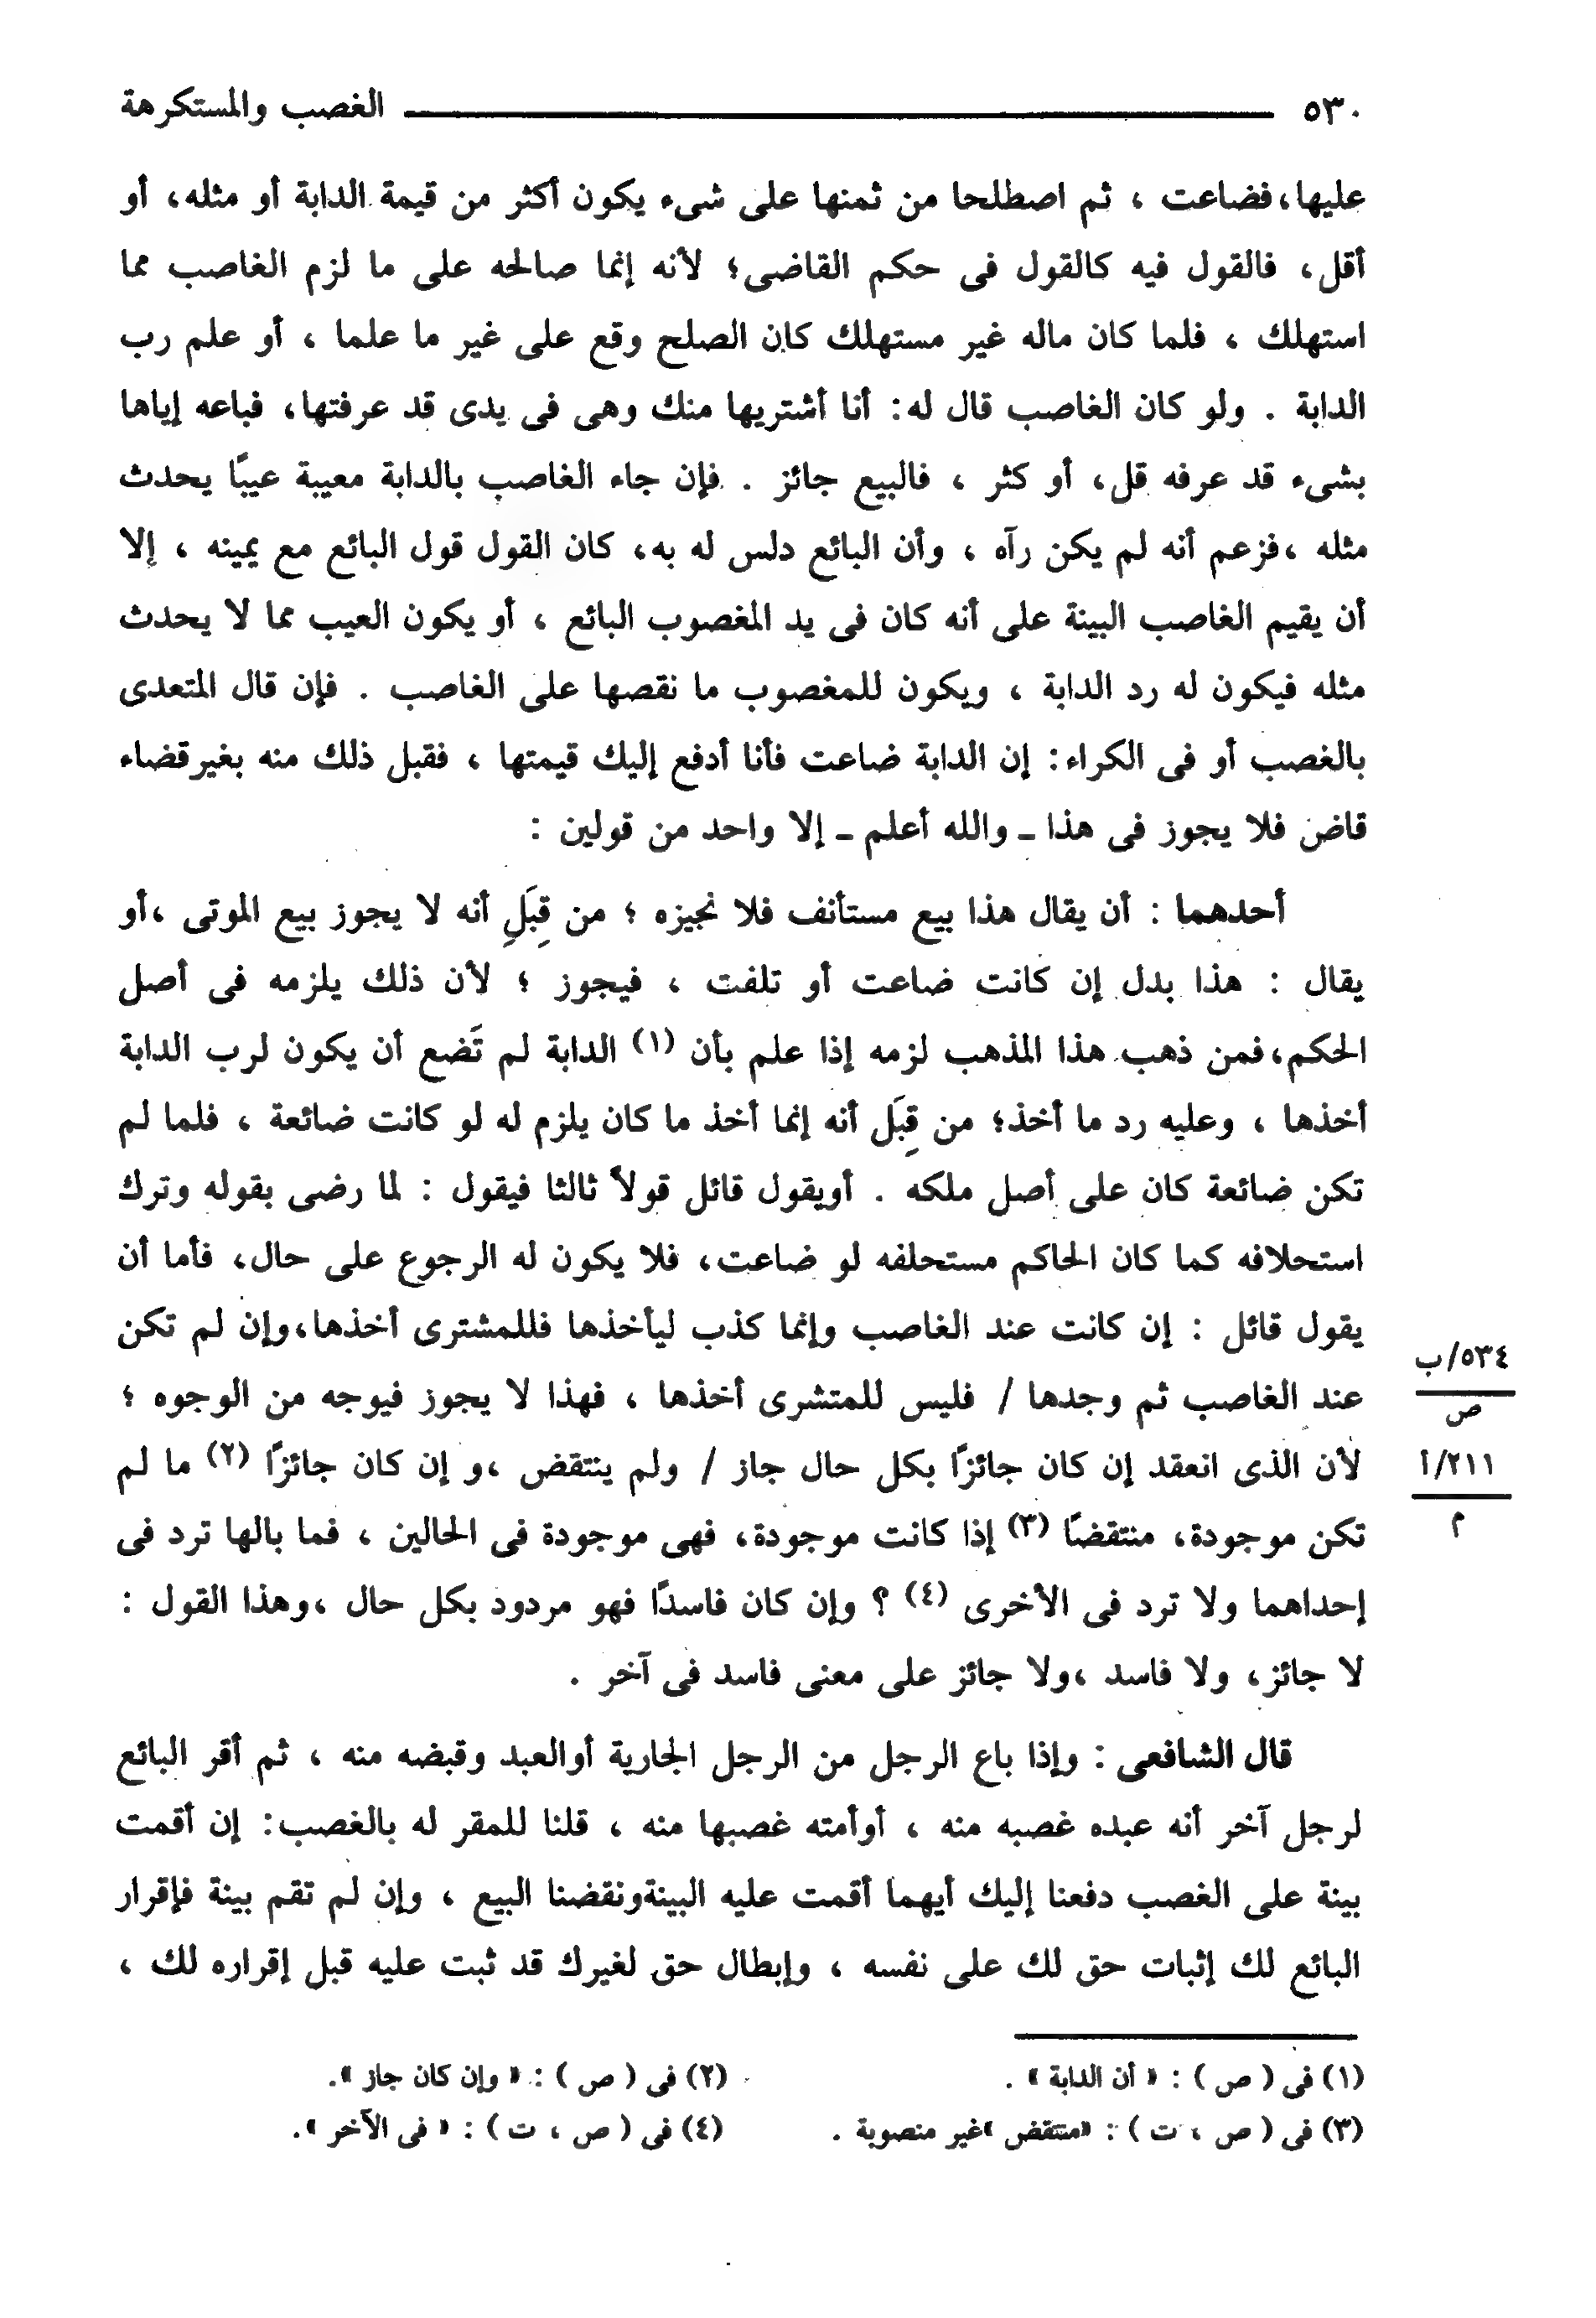 ٥٣٠ الغصب والمستكرهة
عليها،فضاعت ، ثم اصطلحا من ثمنها على شىء يكون أكثر من قيمة الدابة أو مثله، أو
أقل، فالقول فيه كالقول فى حكم القاضى؛ لأنه إنما صالحه على ما لزم الغاصب مما
استهلك ، فلما كان ماله غير مستهلك كان الصلح وقع على غير ما علما ، أو علم رب
الدابة . ولو كان الغاصب قال له: أنا أشتريها منك وهى فى يدى قد عرفتها، فباعه إياها
بشىء قد عرفه قل، أو كثر ، فالبيع جائز . فإن جاء الغاصب بالدابة معيبة عيبًا يحدث
مثله ،فزعم أنه لم يكن رآه ، وأن البائع دلس له به، كان القول قول البائع مع يمينه ، إلا
أن يقيم الغاصب البينة على أنه كان فى يد المغصوب البائع ، أو يكون العيب مما لا يحدث
مثله فيكون له رد الدابة ، ويكون للمغصوب ما نقصها على الغاصب . فإن قال المتعدى
بالغصب أو فى الكراء: إن الدابة ضاعت فأنا أدفع إليك قيمتها ، فقبل ذلك منه بغيرقضاء
قاض فلا يجوز فى هذا ـ والله أعلم ـ إلا واحد من قولين :
أحدهما : أن يقال هذا بيع مستأنف فلا نجيزه ؛ من قِبَلِ أنه لا يجوز بيع الموتى ،أو
يقال : هذا بدل إن كانت ضاعت أو تلفت ، فيجوز ؛ لأن ذلك يلزمه فى أصل
الحكم،فمن ذهب هذا المذهب لزمه إذا علم بأن (١) الدابة لم تَضع أن يكون لرب الدابة
أخذها ، وعليه رد ما أخذ؛ من قِبَل أنه إنما أخذ ما كان يلزم له لو كانت ضائعة ، فلما لم
تكن ضائعة كان على أصل ملكه . أويقول قائل قولاً ثالثا فيقول : لما رضى بقوله وترك
استحلافه كما كان الحاكم مستحلفه لو ضاعت، فلا يكون له الرجوع على حال، فأما أن
يقول قائل : إن كانت عند الغاصب وإنما كذب ليأخذها فللمشترى أخذها،وإن لم تكن
عند الغاصب ثم وجدها / فليس للمتشرى أخذها ، فهذا لا يجوز فيوجه من الوجوه ؛
لأن الذى انعقد إن كان جائزًا بكل حال جاز / ولم ينتقض ،و إن كان جائزًا (٢) ما لم
تكن موجودة، منتقضًا (٣) إذا كانت موجودة، فهى موجودة فى الحالين ، فما بالها ترد فى
إحداهما ولا ترد فى الأخرى (٤) ؟ وإن كان فاسدًا فهو مردود بكل حال ،وهذا القول :
لا جائز، ولا فاسد ،ولا جائز على معنى فاسد فى آخر .
٥٣٤/ب
ص
٢١١/أ
م
قال الشافعى : وإذا باع الرجل من الرجل الجارية أوالعبد وقبضه منه ، ثم أقر البائع
لرجل آخر أنه عبده غصبه منه ، أوأمته غصبها منه ، قلنا للمقر له بالغصب: إن أقمت
بينة على الغصب دفعنا إليك أيهما أقمت عليه البينةونقضنا البيع ، وإن لم تقم بينة فإقرار
البائع لك إثبات حق لك على نفسه ، وإبطال حق لغيرك قد ثبت عليه قبل إقراره لك ،
(١) فى ( ص ) : « أن الدابة » .
(٢) فى ( ص ) : « وإن كان جاز ».
(٣) فى ( ص ، ت ) : «منتقض »غير منصوبة .
(٤) فى ( ص ، ت ) : « فى الآخر ».